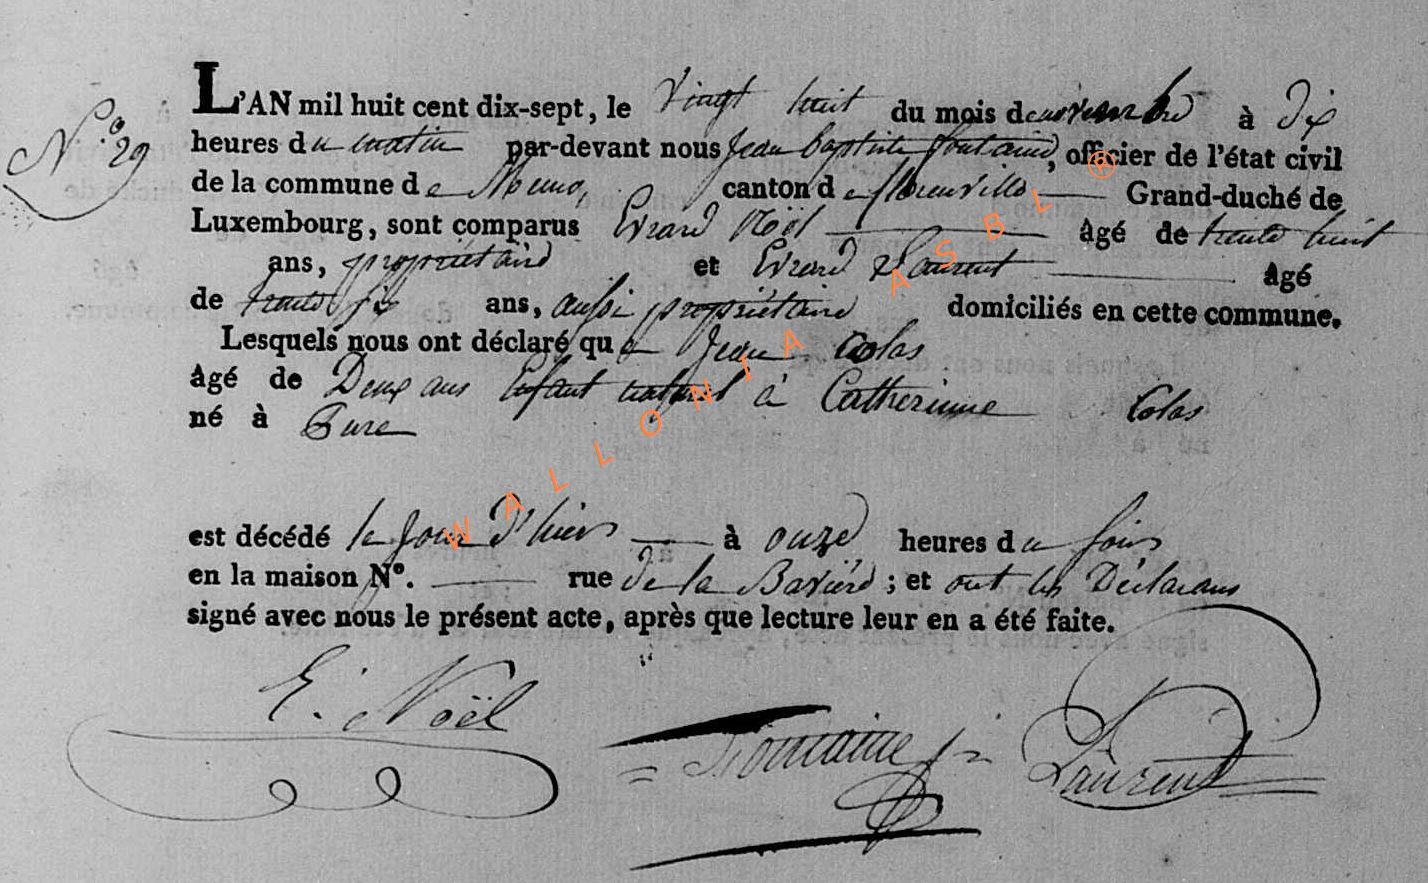 L'AN mil huit cent dix-sept, le vingt huit du mois de novembre à Dix
N.º 29
heures du matin par-devant nous Jean Baptiste fontaine, officier de l'état civil
de la commune de Muno, canton de florenville Grand-duché de
Luxembourg, sont comparus Evrard Noël âgé de trente huit
ans, propriétaire et Evrard Laurent âgé
de trente six ans, aussi propriétaire domiciliés en cette commune.
Lesquels nous ont déclaré que Jean Colas
âgé de Deux ans Enfant naturel à Catherinne Colas
né à Pure
est décédé le jour D'hier à onze heures du soir
en la maison Nº. rue de la Bavière ; et ont les Déclarans
signé avec nous le présent acte, après que lecture leur en a été faite.
E. Noël Fontaine Laurent
WALLONIA ASBL ®